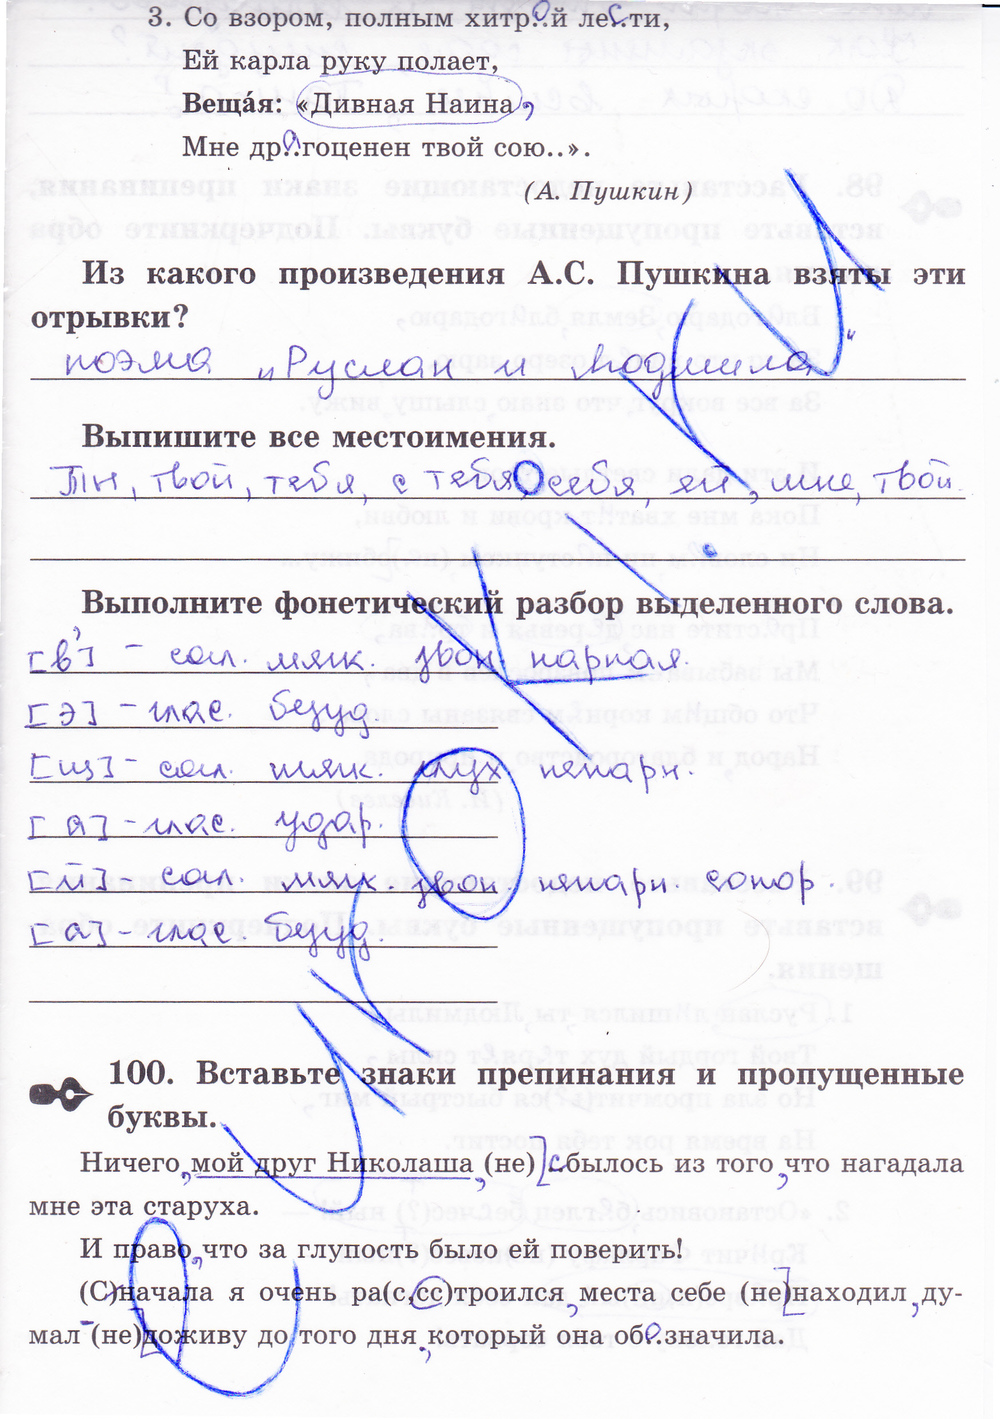 3. Со взором, полным хитр..й ле..ти,
Ей карла руку подает,
Веща́я: «Дивная Наина,
Мне др..гоценен твой сою..».
(А. Пушкин)
Из какого произведения А.С. Пушкина взяты эти
отрывки?
поэма „Руслан и Людмила"
Выпишите все местоимения.
Ты, твой, тебя, с тебя, себя, ей, мне, твой
Выполните фонетический разбор выделенного слова.
[в'] - согл. мягк. звон. парная.
[э] - глас. безуд.
[щ] - согл. мягк. глух непарн.
[а] - глас. удар.
[й] - согл. мягк. звон непарн. сонор.
[а] - глас. безуд.
100. Вставьте знаки препинания и пропущенные
буквы.
Ничего, мой друг Николаша, (не) сбылось из того, что нагадала
мне эта старуха.
И право, что за глупость было ей поверить!
(С)начала я очень ра(с,сс)троился, места себе (не)находил, ду-
мал - (не)доживу до того дня, который она об..значила.